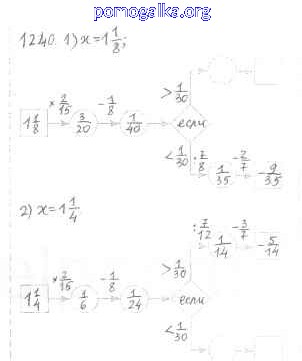 pomogalka.org
1240. 1) x=1 1/8;
1 1/8 × 2/15 3/20 - 1/8 1/40 если
> 1/30
< 1/30 : 7/8 1/35 - 2/7 - 9/35
2) x=1 1/4
1 1/4 × 2/15 1/6 - 1/8 1/24 если
> 1/30 : 7/12 1/14 - 3/7 - 5/14
< 1/30